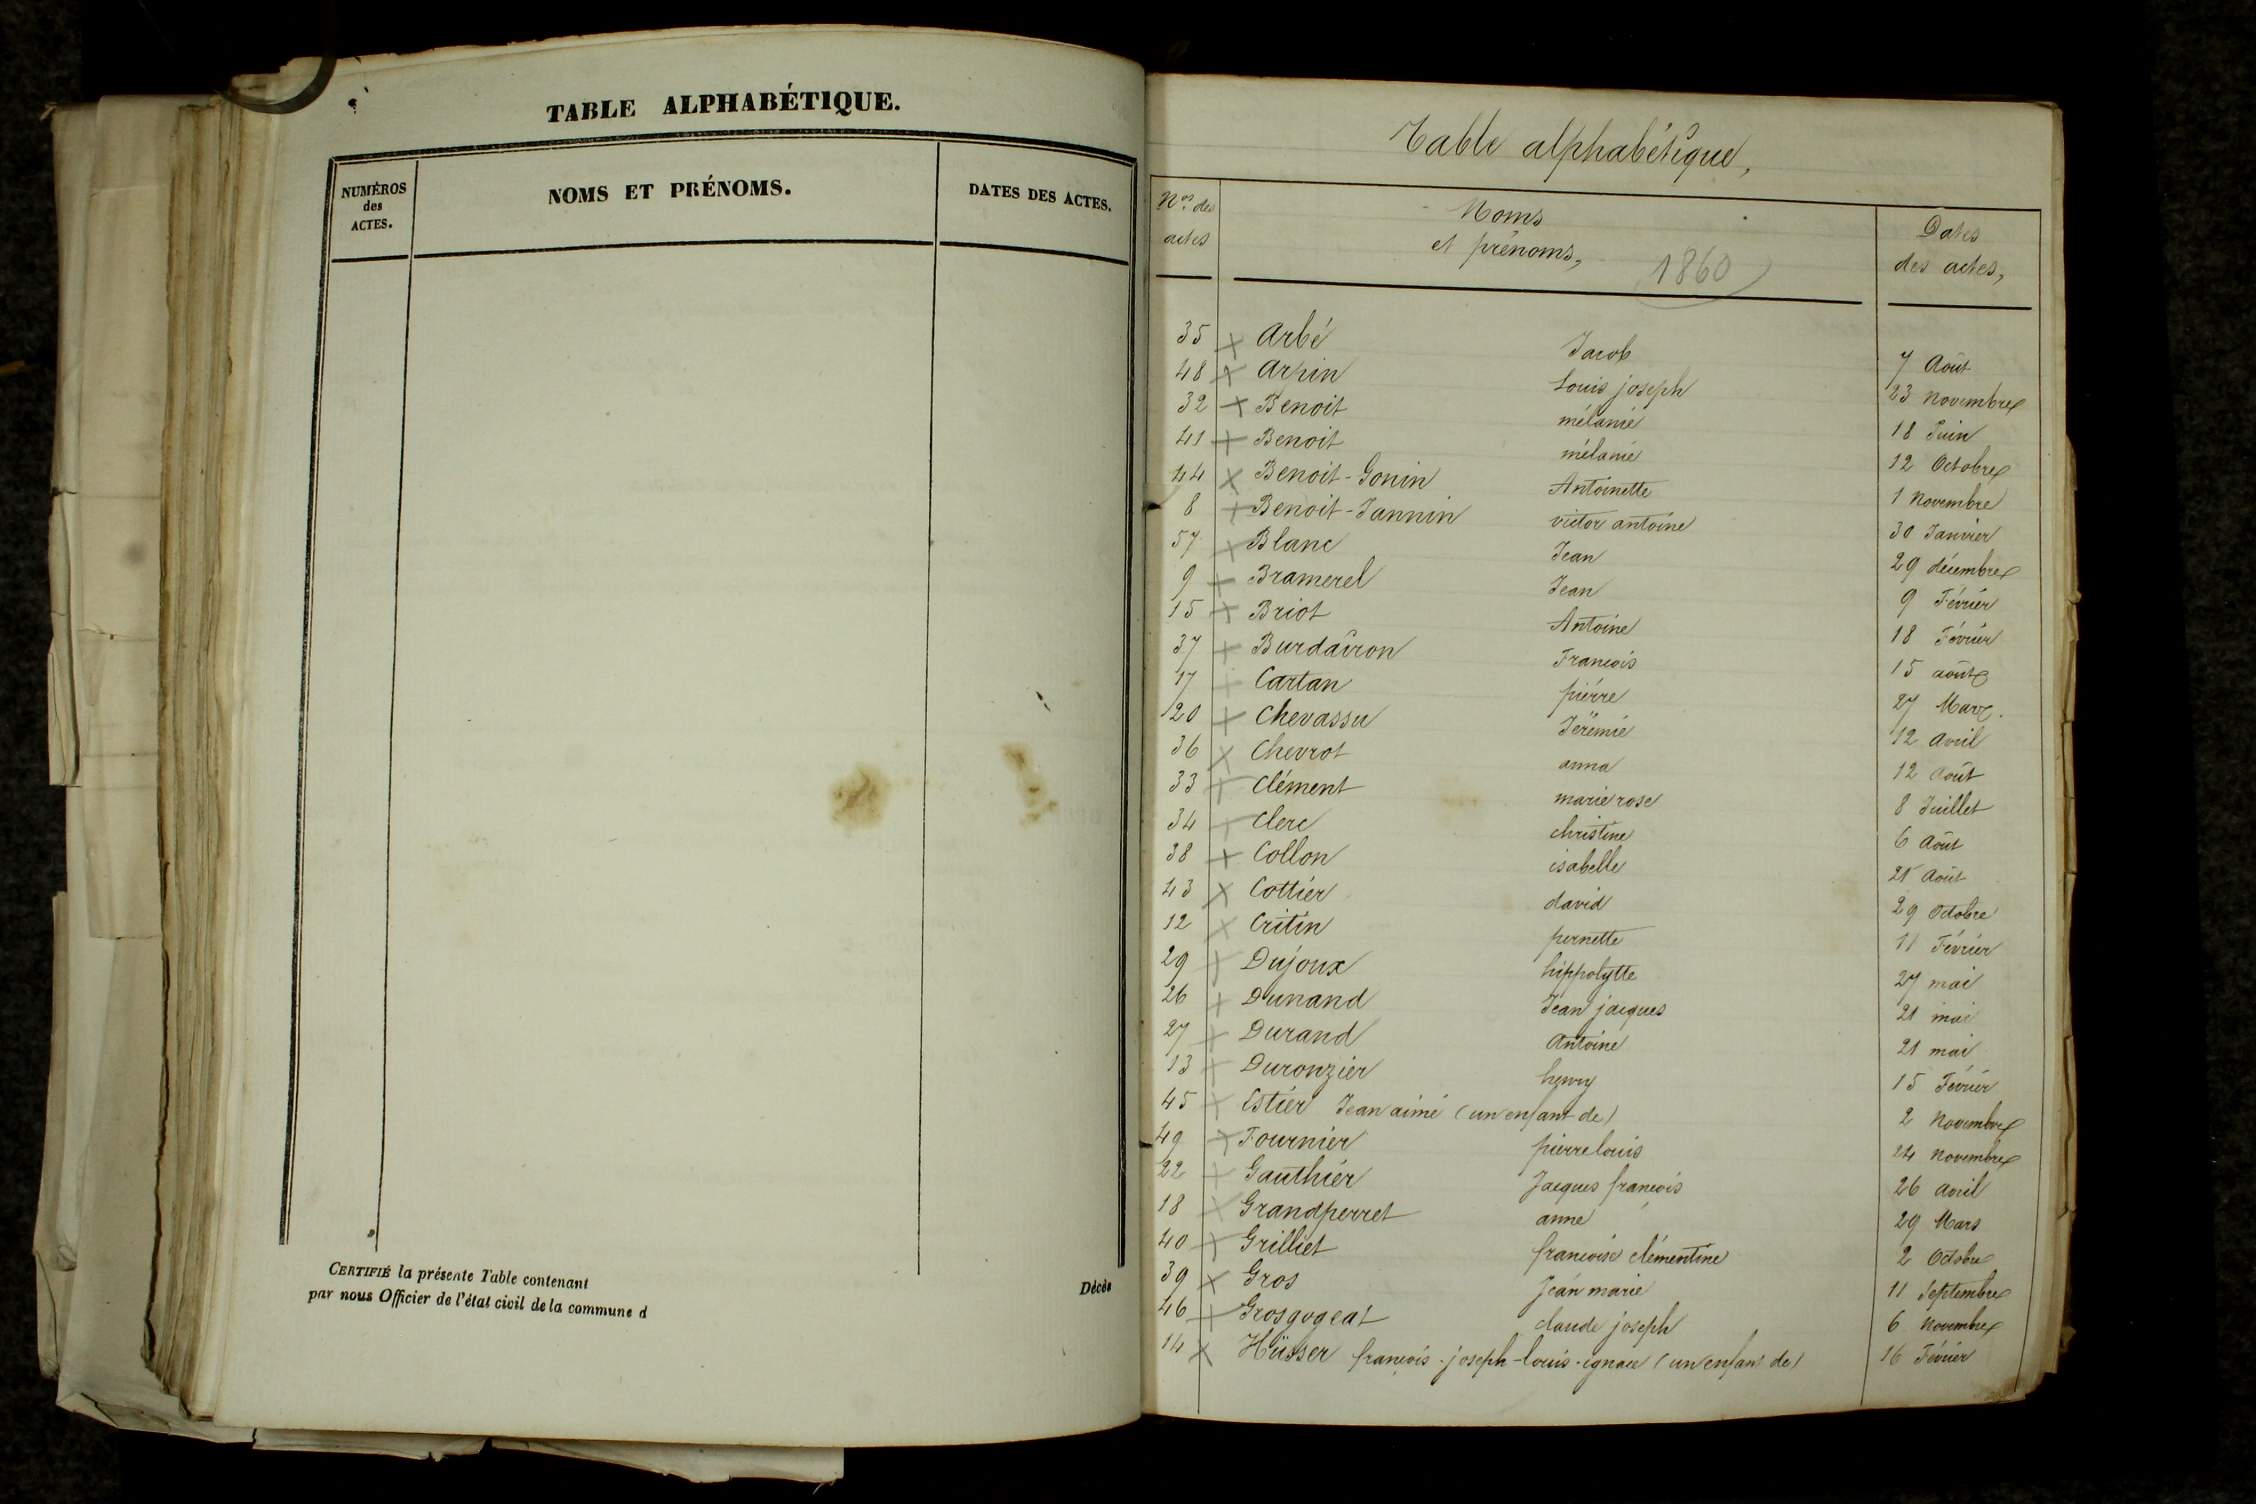 TABLE ALPHABÉTIQUE.
NUMÉROS des ACTES. NOMS ET PRÉNOMS. DATES DES ACTES.
CERTIFIÉ la présente Table contenant Décès
par nous Officier de l'état civil de la commune d
Table alphabétique,
Nos. des actes Noms et prénoms, 1860 Dates des actes,
35 Arbé Jacob 7 Août
48 Arpin Louis joseph 23 novembre
32 Benoit mélanie 18 Juin
41 Benoit mélanie 12 Octobre
44 Benoit-Gonin Antoinette 1 novembre
8 Benoit-Jannin victor antoine 30 Janvier
57 Blanc Jean 29 décembre
9 Bramerel Jean 9 Février
15 Briot Antoine 18 Février
37 Burdairon François 15 août
17 Cartan pierre 27 Mars
20 Chevassu Jérémie 12 avril
36 Chevrot anna 12 Août
33 Clément marie rose 8 Juillet
34 Clerc christine 6 Août
38 Collon isabelle 21 Août
43 Cottier david 29 Octobre
12 Critin pernette 11 Février
29 Dujoux hippolytte 27 mai
26 Dunand Jean jacques 21 mai
27 Durand Antoine 21 mai
13 Duronzier henry 15 Février
45 Estier Jean aimé (un enfant de) 2 Novembre
49 Fournier pierre louis 24 novembre
22 Gauthier Jacques françois 26 avril
18 Grandperret anne 29 Mars
40 Grilliet françoise clémentine 2 Octobre
39 Gros Jean marie 11 Septembre
46 Grosgogeat claude joseph 6 novembre
14 Hüsser françois-joseph-louis-ignace (un enfant de) 16 Février